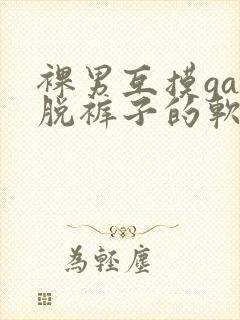 裸男互摸ga
脱裤子的軟
為輕塵